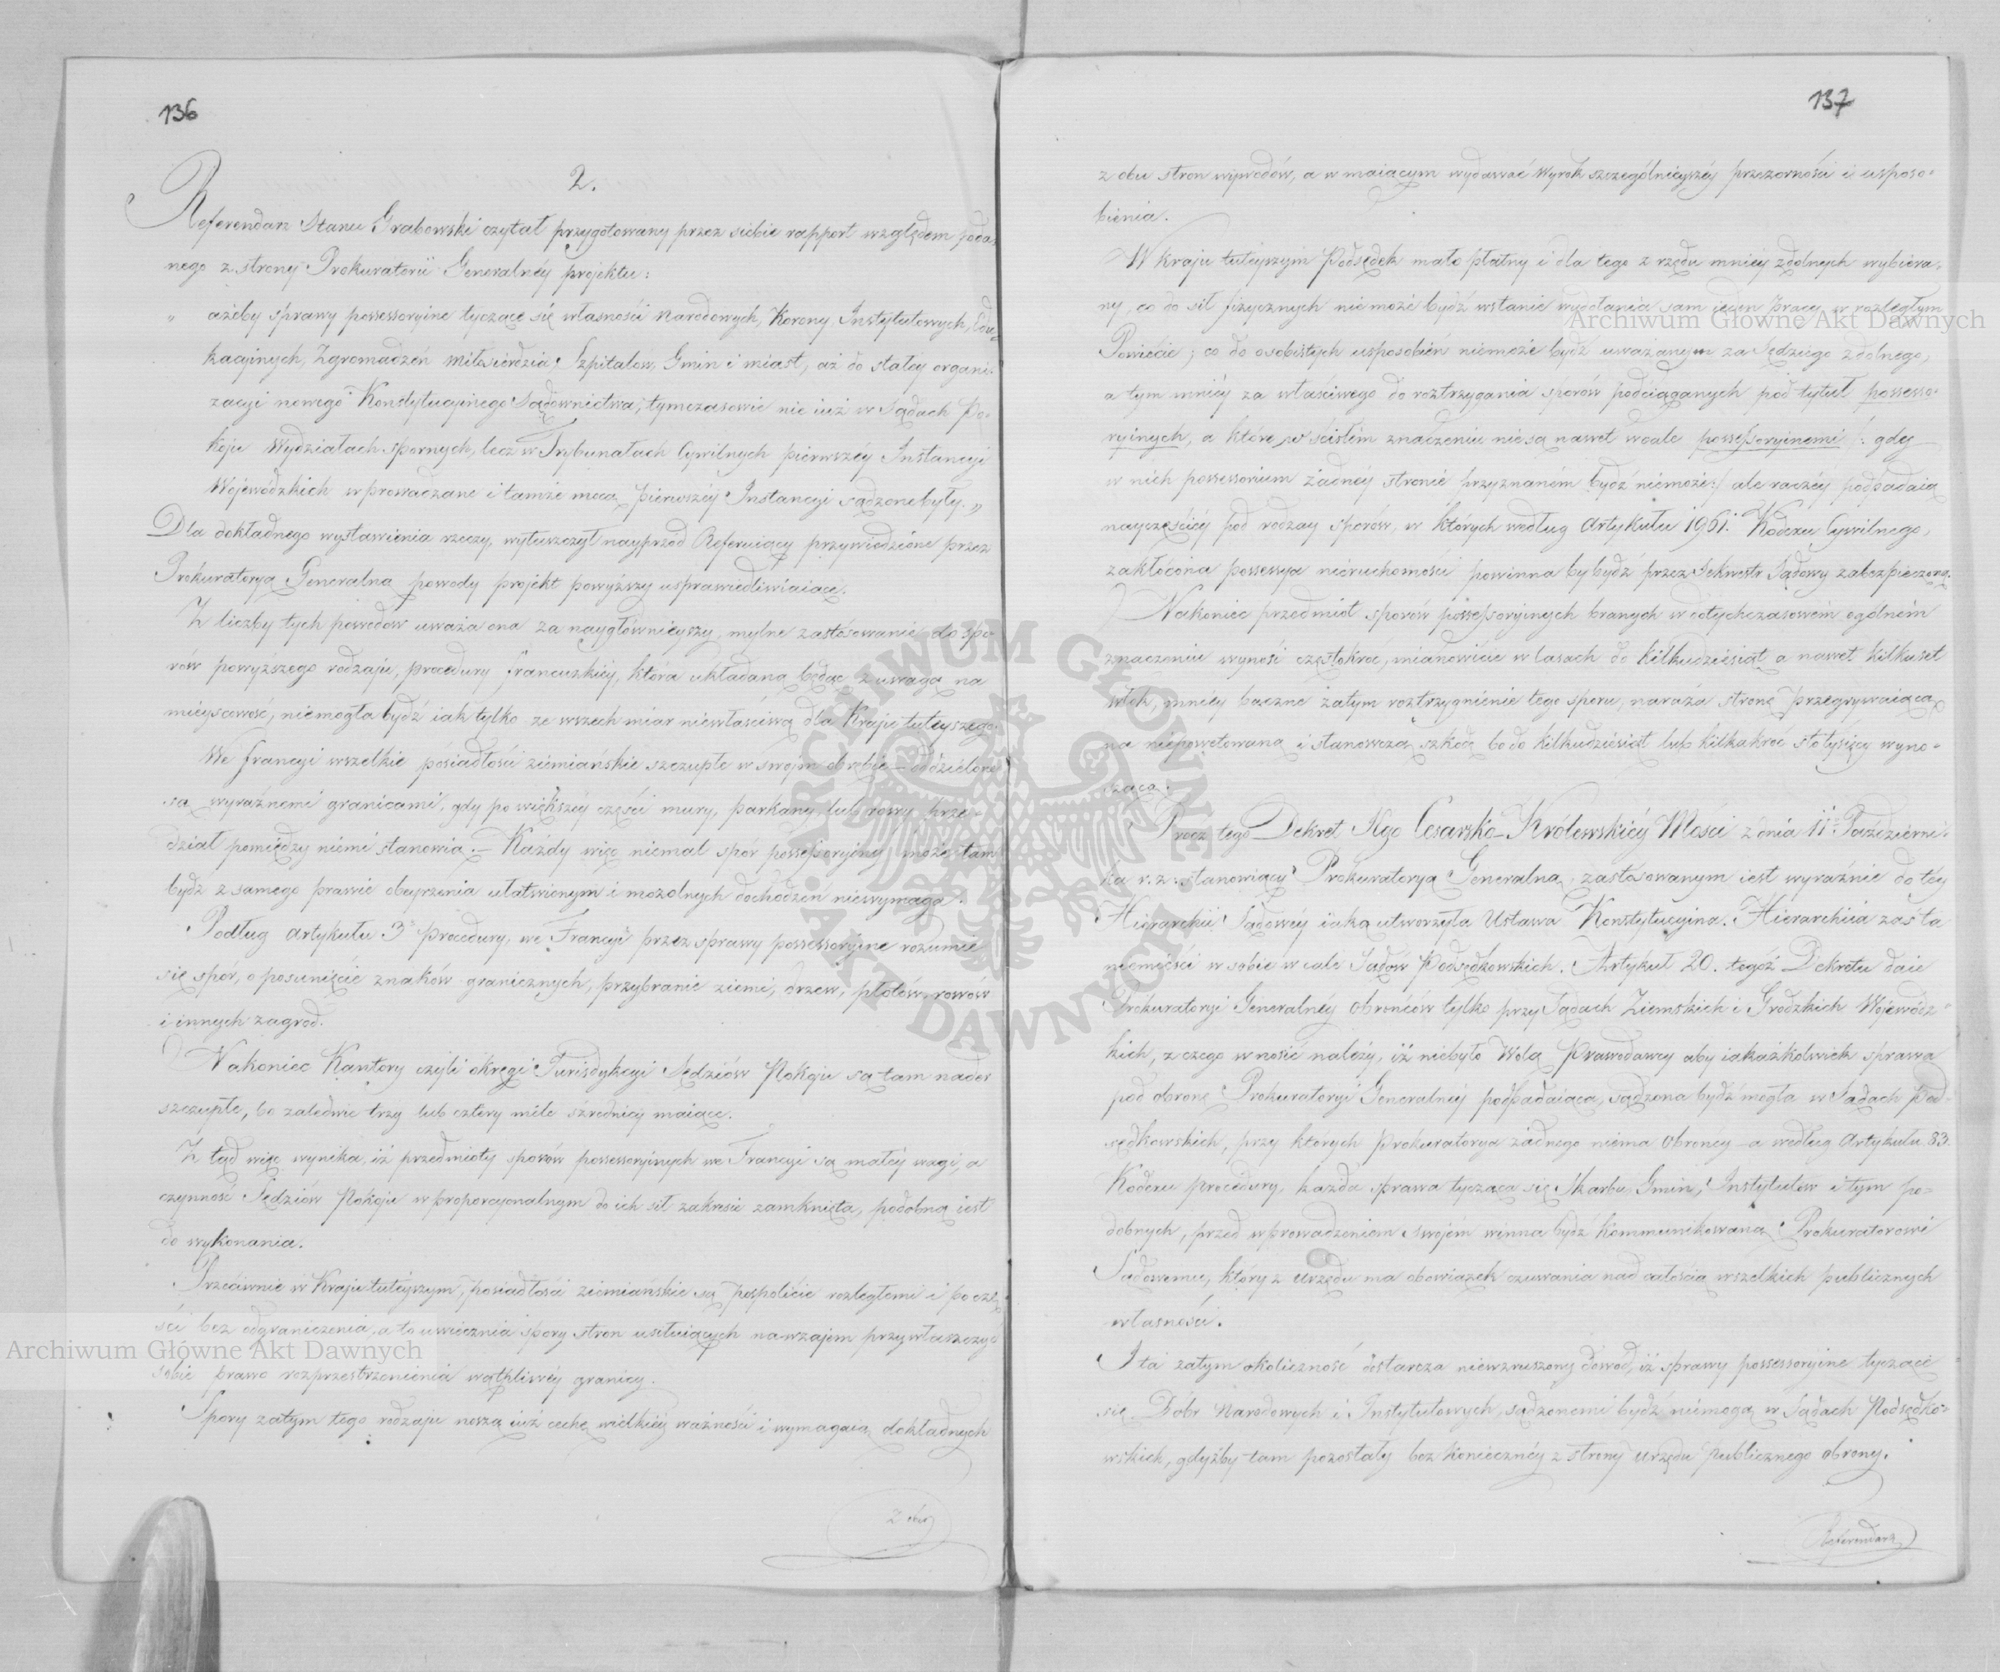 136
2.
Referendarz Stanu Grabowski czytał przygotowany przez siebie rapport względem poda-
nego z strony Prokuratorii Generalnéy projektu:
„ ażeby sprawy possessoryine tyczące się własności Narodowych, Korony, Instytutowych, Edu-
kacyinych, Zgromadzeń miłosierdzia, Szpitalów, Gmin i miast, aż do stałey organi-
zacyi nowego Konstytucyinego Sądownictwa, tymczasowie nie iuż w Sądach Po-
koju Wydziałach spornych, lecz w Trybunałach Cywilnych pierwszéy Instancyi
Wojewódzkich wprowadzane i tamże mocą pierwszéy Instancyi sądzone były. „
Dla dokładnego wystawienia rzeczy, wyłuszczył nayprzód Referuiący przywiedzione przez
Prokuratoryą Generalną powody projekt powyższy usprawiedliwiaiące.
Z liczby tych powodów uważa ona za naygłównieyszy, mylne zastósowanie do spo-
rów powyższego rodzaju, procedury francuzkiéy, która układaną będąc z uwagą na
mieyscowość, niemogła bydź iak tylko ze wszech miar niewłaściwą dla Kraju tuteyszego.
We francyi wszelkie posiadłości ziemiańskie szczupłe w swoim obrębie – oddzielone
są wyraźnemi granicami, gdy po większéy części mury, parkany lub rowy prze-
dział pomiędzy niemi stanowią. – Każdy więc niemal spór possessoryiny może tam
bydź z samego prawie obeyrzenia ułatwionym i mozolnych dochodzeń niewymaga.
Podług artykułu 3° procedury, we Francyi przez sprawy possessoryine rozumie
się spór, o posunięcie znaków granicznych, przybranie ziemi, drzew, płotów, rowów
i innych zagród.
Nakoniec Kantony czyli okręgi Jurisdykcyi Sędziów Pokoju są tam nader
szczupłe, bo zaledwie trzy lub cztery mile szrednicy maiące.
Z tąd więc wynika, iż przedmioty sporów possessoryinych we Francyi są małéy wagi, a
czynność Sędziów Pokoju w proporcyonalnym do ich sił zakresie zamknięta, podobną iest
do wykonania.
Przeciwnie w Kraju tuteyszym, posiadłości ziemiańskie są pospolicie rozległemi i po czę-
ści bez odgraniczenia, a to uwiecznia spory stron usiłuiących nawzajem przywłaszczyć
sobie prawo rozprzestrzenienia wątpliwéy granicy.
Spory zatym tego rodzaju noszą iuż cechę wielkiéy ważności i wymagaią dokładnych
z obu
137
z obu stron wywodów, a w maiącym wydawać Wyrok szczególnieyszéy przezorności i usposo-
bienia.
W kraju tuteyszym Podsędek mało płatny i dla tego z rzędu mniey zdolnych wybiera-
ny, co do sił fizycznych nie może bydź wstanie wydołania sam ieden pracy w rozległym
Powiecie; co do osobistych usposobień niemoże bydź uważanym za Sędziego zdolnego,
a tym mniéy za właściwego do roztrzygania sporów podciąganych pod tytuł possesso-
ryinych, a które w ścisłém znaczeniu nie są nawet wcale possessoryinemi /: gdy
w nich possessorium żadnéy stronie przyznaném bydź niemoże :/ ale raczéy podpadaią
nayczęściéy pod rodzay sporów, w których według Artykułu 1961. Kodexu Cywilnego,
zakłócona possessya nieruchomości powinna by bydź przez Sekwestr Sądowy zabezpieczoną.
Nakoniec przedmiot sporów possessoryinych branych w dotychczasowém ogólném
znaczeniu wynosi częstokroć, mianowicie w lasach do kilkudziesiąt a nawet kilkuset
włók, mniéy baczne zatym roztrzygnienie tego sporu, naraża stronę przegrywaiącą
na niepowetowaną i stanowczą szkodę bo do kilkudziesiąt lub kilkakroć stotysięcy wyno-
szącą.
Prócz tego Dekret Jego Cesarsko-Królewskiéy Mości z dnia 11° Październi-
ka r. z. stanowiący Prokuratoryą Generalną, zastósowanym iest wyraźnie do téy
Hierarchii Sądowéy iaką utworzyła Ustawa Konstytucyina. Hierarchiia zaś ta
niemieści w sobie wcale Sądów Podsędkowskich. Artykuł 20. tegoż Dekretu daie
Prokuratoryi Generalnéy Obrońców tylko przy Sądach Ziemskich i Grodzkich Wojewódz-
kich, z czego wnosić należy, iż niebyło Wolą Prawodawcy aby iakażkolwiek sprawa
pod obronę Prokuratoryi Generalnéy podpadaiąca, sądzona bydź mogła w Sądach Pod-
sędkowskich, przy których Prokuratorya żadnego niema Obrońcy – a według Artykułu 83.
Kodexu procedury, każda sprawa tycząca się Skarbu, Gmin, Instytutów i tym po-
dobnych, przed wprowadzeniem swojém winna bydź kommunikowana Prokuratorowi
Sądowemu, który z urzędu ma obowiązek czuwania nad całością wszelkich publicznych
własności.
I ta zatym okoliczność dostarcza niewzruszony dowód, iż sprawy possessoryine tyczące
się Dóbr Narodowych i Instytutowych, sądzonemi bydź niemogą w Sądach Podsędko-
wskich, gdyżby tam pozostały bez koniecznéy z strony urzędu publicznego obrony.
Referendarz
Archiwum Główne Akt Dawnych
Archiwum Główne Akt Dawnych
ARCHIWUM GŁÓWNE AKT DAWNYCH